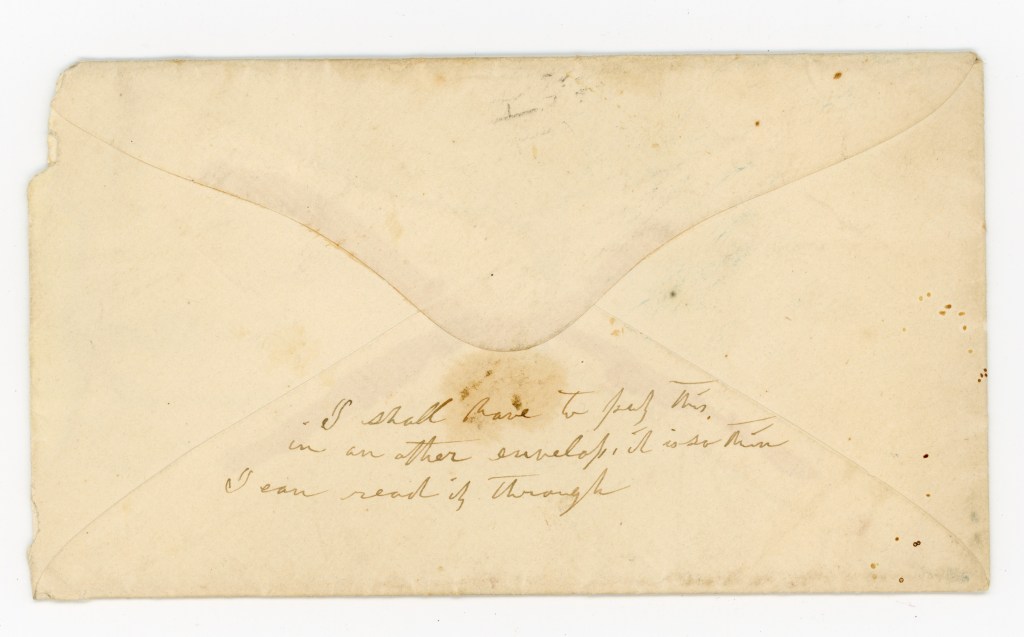 I shall have to put this
in an other envelop, it is so thin
I can read it through